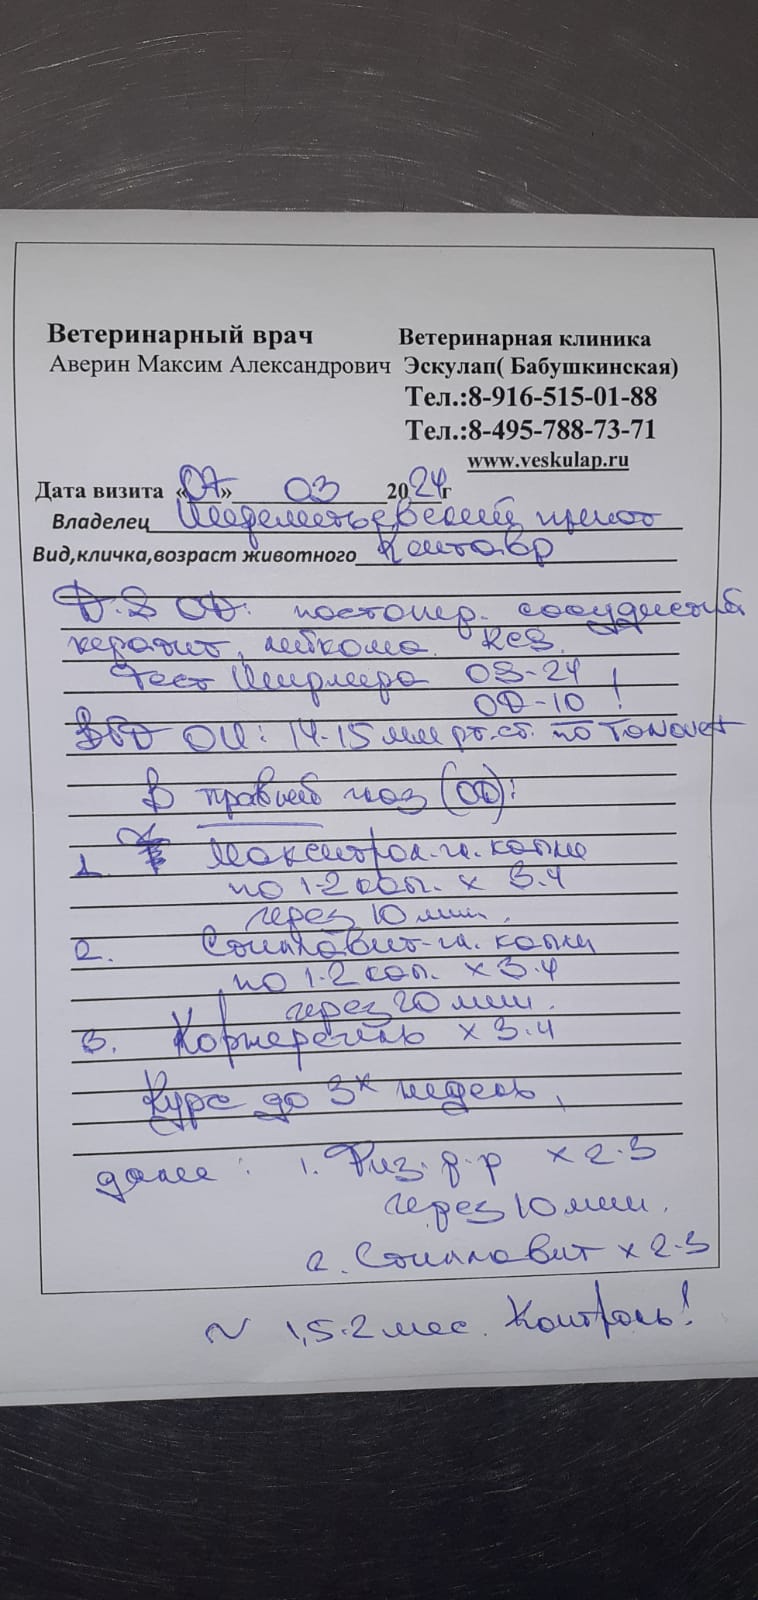 Ветеринарный врач
Ветеринарная клиника
Аверин Максим Александрович
Эскулап( Бабушкинская)
Тел.:8-916-515-01-88
Тел.:8-495-788-73-71
www.veskulap.ru
Дата визита «07» 03 2024г
Владелец Шереметьевский приют
Вид,кличка,возраст животного Кентавр
D.S OD: постопер. сосудистый
кератит, лейкома.
Тест Ширмера OS-24
OD-10 !
ВГД OU: 14-15 мм рт.ст. по Tonovet
В правый глаз (OD):
1. Макситрол-гл. капли
по 1-2 кап. х 3-4
через 10 мин.
2. Стиллавит-гл. капли
по 1-2 кап. х 3-4
через 20 мин.
3. Корнерегель х 3-4
Курс до 3х недель,
далее: 1. Физ. р-р х 2-3
через 10 мин.
2. Стиллавит х 2-3
~ 1,5-2 мес. Контроль!